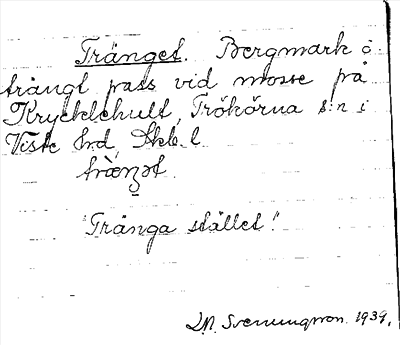 Tränget. Bergmark o
trängt pass vid mosse på
Kryckleshult, Trökörna s:n i
Viste hrd, Skb. l.
tràŋət.
"Trånga stället."
Svenungsson. 1939.